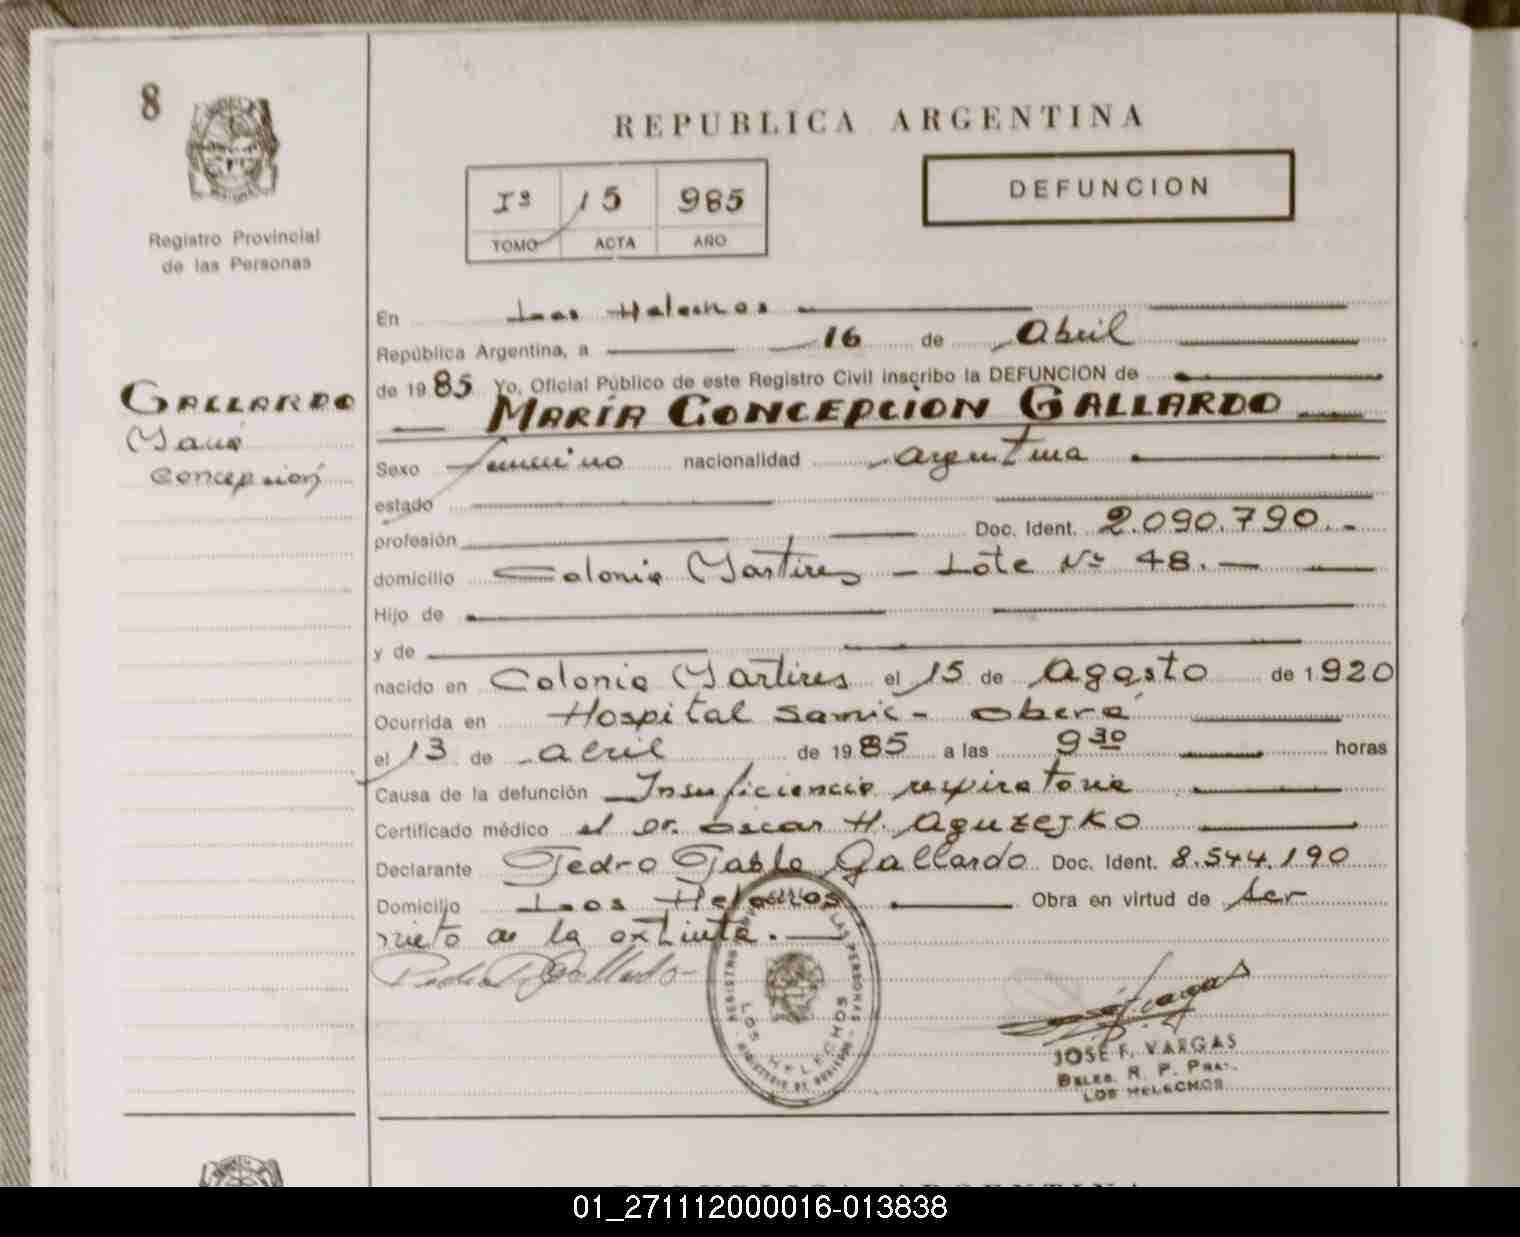 8
REPUBLICA ARGENTINA
Iº 15 985
TOMO ACTA AÑO
DEFUNCION
Registro Provincial
de las Personas
GALLARDO
María
Concepción
En Los Helechos
República Argentina, a 16 de Abril
de 1985 Yo, Oficial Público de este Registro Civil inscribo la DEFUNCION de
MARÍA CONCEPCION GALLARDO
Sexo femenino nacionalidad argentina
estado
profesión Doc. Ident. 2.090.790.-
domicilio Colonia Martires - Lote Nº 48.-
Hijo de
y de
nacido en Colonia Martires el 15 de Agosto de 1920
Ocurrida en Hospital Samic - Oberá
el 13 de abril de 1985 a las 9 30 horas
Causa de la defunción Insuficiencia respiratoria
Certificado médico el Dr. Oscar H. Aguzejko
Declarante Pedro Pablo Gallardo Doc. Ident. 8.544.190
Domicilio Los Helechos Obra en virtud de ser
nieto de la extinta.-
Pedro P. Gallardo
LOS HELECHOS
JOSÉ F. VARGAS
DELEG. R. P.
LOS HELECHOS
REPUBLICA ARGENTINA
01_271112000016-013838